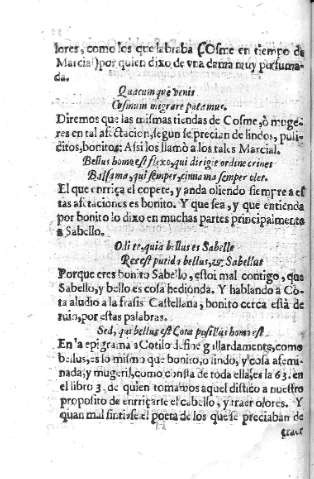 lores, como los que labraba (Cosme en tiempo de
Marcial) por quien dixo de vna dama muy perfuma-
da.
Quacumque venis
Cosmum migrare putamus.
Diremos que las mismas tiendas de Cosme, ò muge-
res en tal afectacion, segun se precian de lindos, puli-
ditos, bonitos: Assi los llamò a los tales Marcial.
Bellus homo est flexos, qui dirigit ordine crines
Balsama, qui semper, cinnama semper olet.
El que enrriça el copete, y anda oliendo siempre a es
tas afectaciones es bonito. Y que sea, y que entienda
por bonito lo dixo en muchas partes principalmente
a Sabello.
Odi te, quia bellus es Sabelle
Res est putida bellus, Sabellus
Porque eres bonito Sabello, estoi mal contigo, que
Sabello, y bello es cosa hedionda. Y hablando à Co-
ta aludio a la frasis Castellana, bonito cerca està de
ruin, por estas palabras.
Sed, qui bellus est Cota pusillus homo est.
En la epigrama a Cotilo define gallardamente, como
bellus, es lo mismo que bonito, o lindo, y cosa afemi-
nada, y mugeril, como consta de toda ella, es la 63. en
el libro 3. de quien tomamos aquel distico a nuestro
proposito de enrriçarse el cabello, y traer olores. Y
quan mal sintiesse el poeta de los que se preciaban de